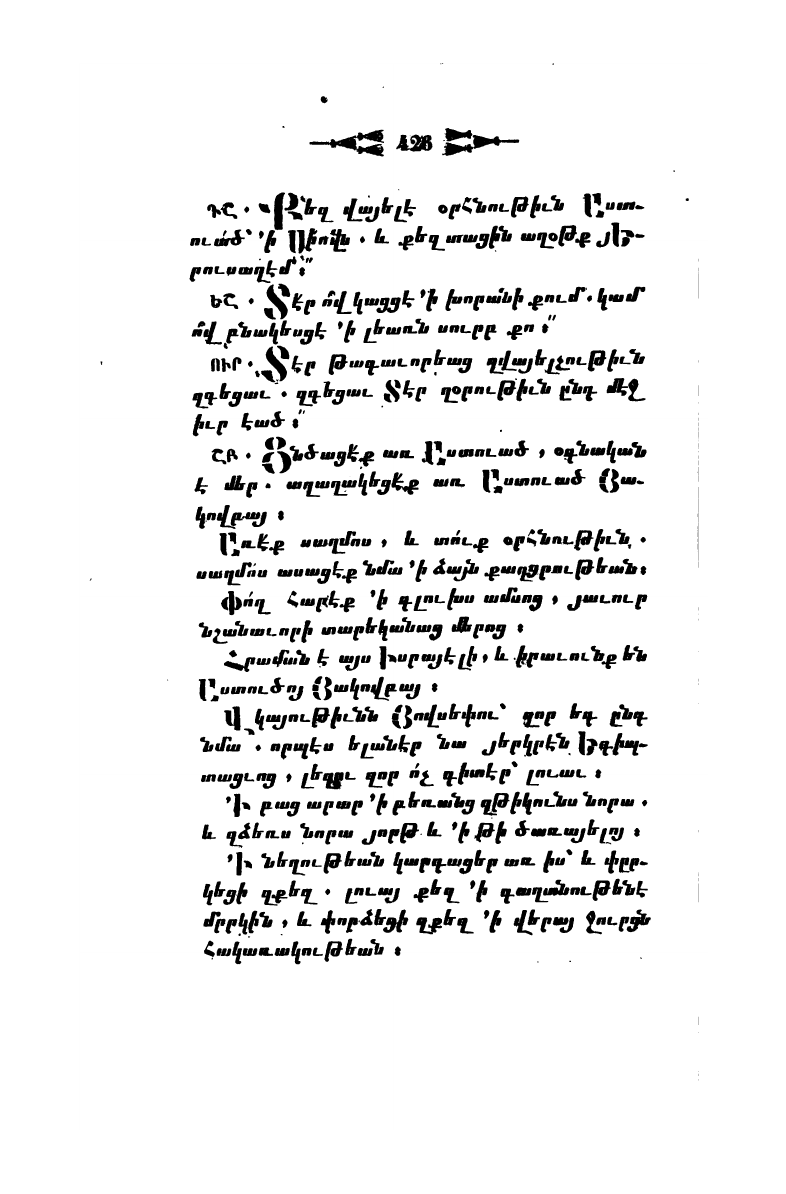 426
ԴՇ . Քեզ վայելէ օրհնութիւն Աստ-
ուած՝ ՚ի Սիովն . և քեզ տացին աղօթք յԵ-
րուսաղէմ՝։՟
ԵՇ . Տէր ո՞վ կացցէ ՚ի խորանի քում . կամ
ո՞վ բնակեսցէ ՚ի լեառն սուրբ քո ։՟
ՈՒՐ . Տէր թագաւորեաց զվայելչութիւն
զգեցաւ . զգեցաւ Տէր զօրութիւն ընդ մէջ
իւր էած ։՟
ՇԲ . Ցնծացէք առ Աստուած , օգնական
է մեր . աղաղակեցէք առ Աստուած Յա-
կովբայ ։
Առէք սաղմոս , և տուք օրհնութիւն .
սաղմոս ասացէք նմա ՚ի ձայն քաղցրութեան ։
Փող հարէք ՚ի գլուխս ամսոց , յաւուր
նշանաւորի տարեկանաց մերոց ։
Հրաման է այս Իսրայէլի , և իրաւունք են
Աստուծոյ Յակովբայ ։
Վկայութիւնն Յովսեփու՝ զոր եդ ընդ
նմա . որպէս ելանէր նա յերկրէն Եգիպ-
տացւոց , լեզու զոր ոչ գիտէր՝ լուաւ ։
՚Ի բաց արար ՚ի բեռանց զթիկունս նորա .
և զձեռս նորա յորթ և ՚ի թի ծառայելոյ ։
՚Ի նեղութեան կարդացեր առ իս՝ և փըր-
կեցի զքեզ . լուայ քեզ ՚ի գաղտնութենէ
մրրկին , և փորձեցի զքեզ ՚ի վերայ ջուրցն
հակառակութեան ։